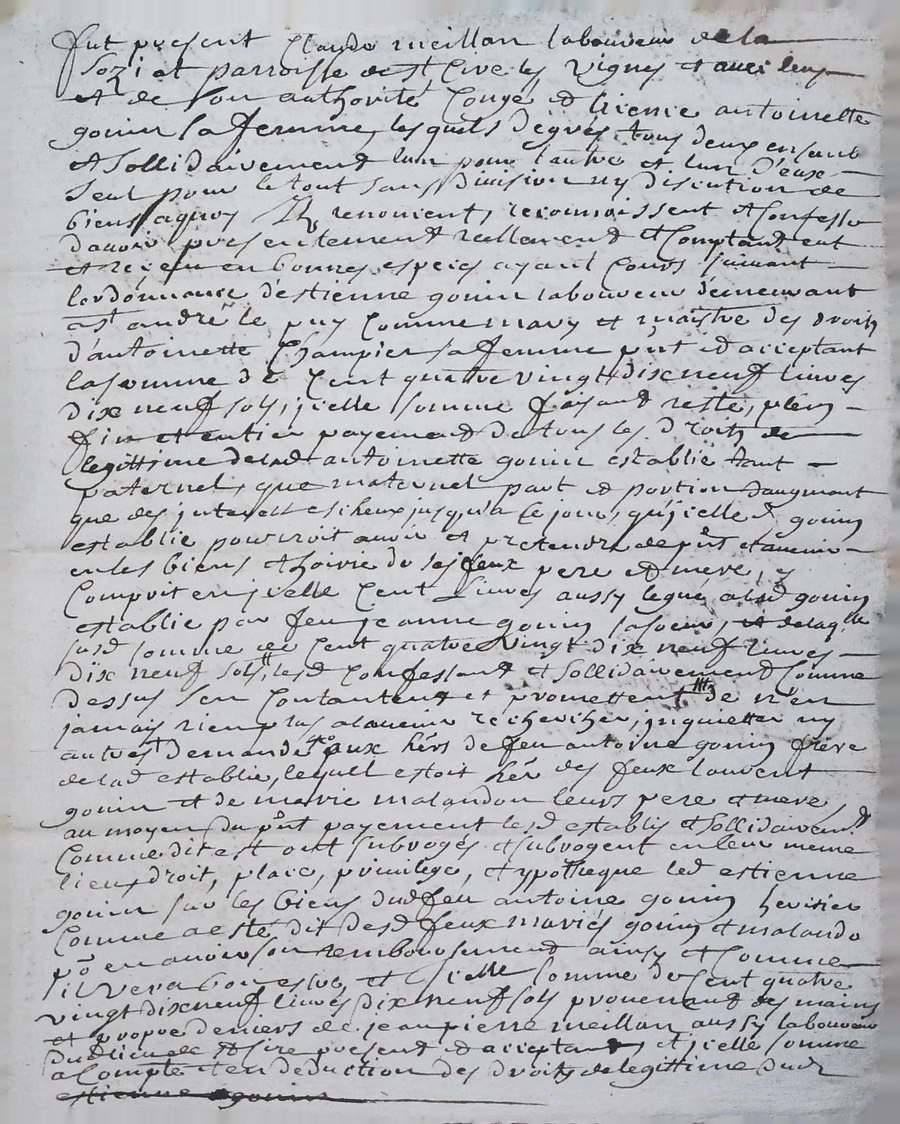 fut present Claude meillan laboureur de la
parroisse de st Cire les Vignes et avec luy
et de son authorité Congé et licence antoinette
gonin sa femme, lesquels de grés tous deux ensemb
et sollidairement lun pour lautre et lun d'eux
seul pour le tout sans division ny discution de
biens a quoy Ils renoncent, reconnoissent et Confesse
davoir presentement reellement et Comptant eut
et reçeu en bonnes especes ayant Cours suivant
lordonnance d'estienne gonin laboureur demeurant
a st andré le puy Comme mary et maistre des droits
d'antoinette Champier sa femme pnt et acceptant
la somme de Cent quatre vingt dix neuf livres
dix neuf sols, icelle somme faisant reste, plein
fin et entier payement de tous les droits de
legittime de lad antoinette gonin establie tant
paternel, que maternel part et portion daugmant
que des interest escheux jusqu'a ce jour, qu'icelle d gonin
establie pourroit avoir et pretendre de pnt et avenir
en les biens et hoirie de ses feux pere et mere, y
Comprit en icelle Cent Livres aussy legué a lad gonin
establie par feu jeanne gonin sa soeur, et de laqlle
susd somme de Cent quatre vingt dix neuf livres
dix neuf sols, lesd Confessant et sollidairement Comme
dessus s'en Contantent et promettent de n'en
jamais rien plus a lavenir rechercher, inquietter ny
autres demande aux hers de feu antoine gonin frere
de lad establie, lequel estoit her des feux laurent
gonin et de marie malandon leurs pere et mere,
au moyen du pnt payement lesd establis et sollidairemt
Comme dit est ont subrogés et subrogent en leur meme
lieu, droit, place, privilege, et ypotheque led estienne
gonin sur les biens dud feu antoine gonin heritier
Comme a esté dit desd feux mariés gonin et malando
po en avoir son remboursement ainsy et Comme
il verra bon estre, et icelle somme de Cent quatre
vingt dix neuf livres dix neuf sols provenant des mains
et propre deniers de jean pierre meillan aussy laboureur
du lieu de st Cire present et acceptant, et icelle somme
a Compte et en deduction des droits de legittime dud
estienne gonin